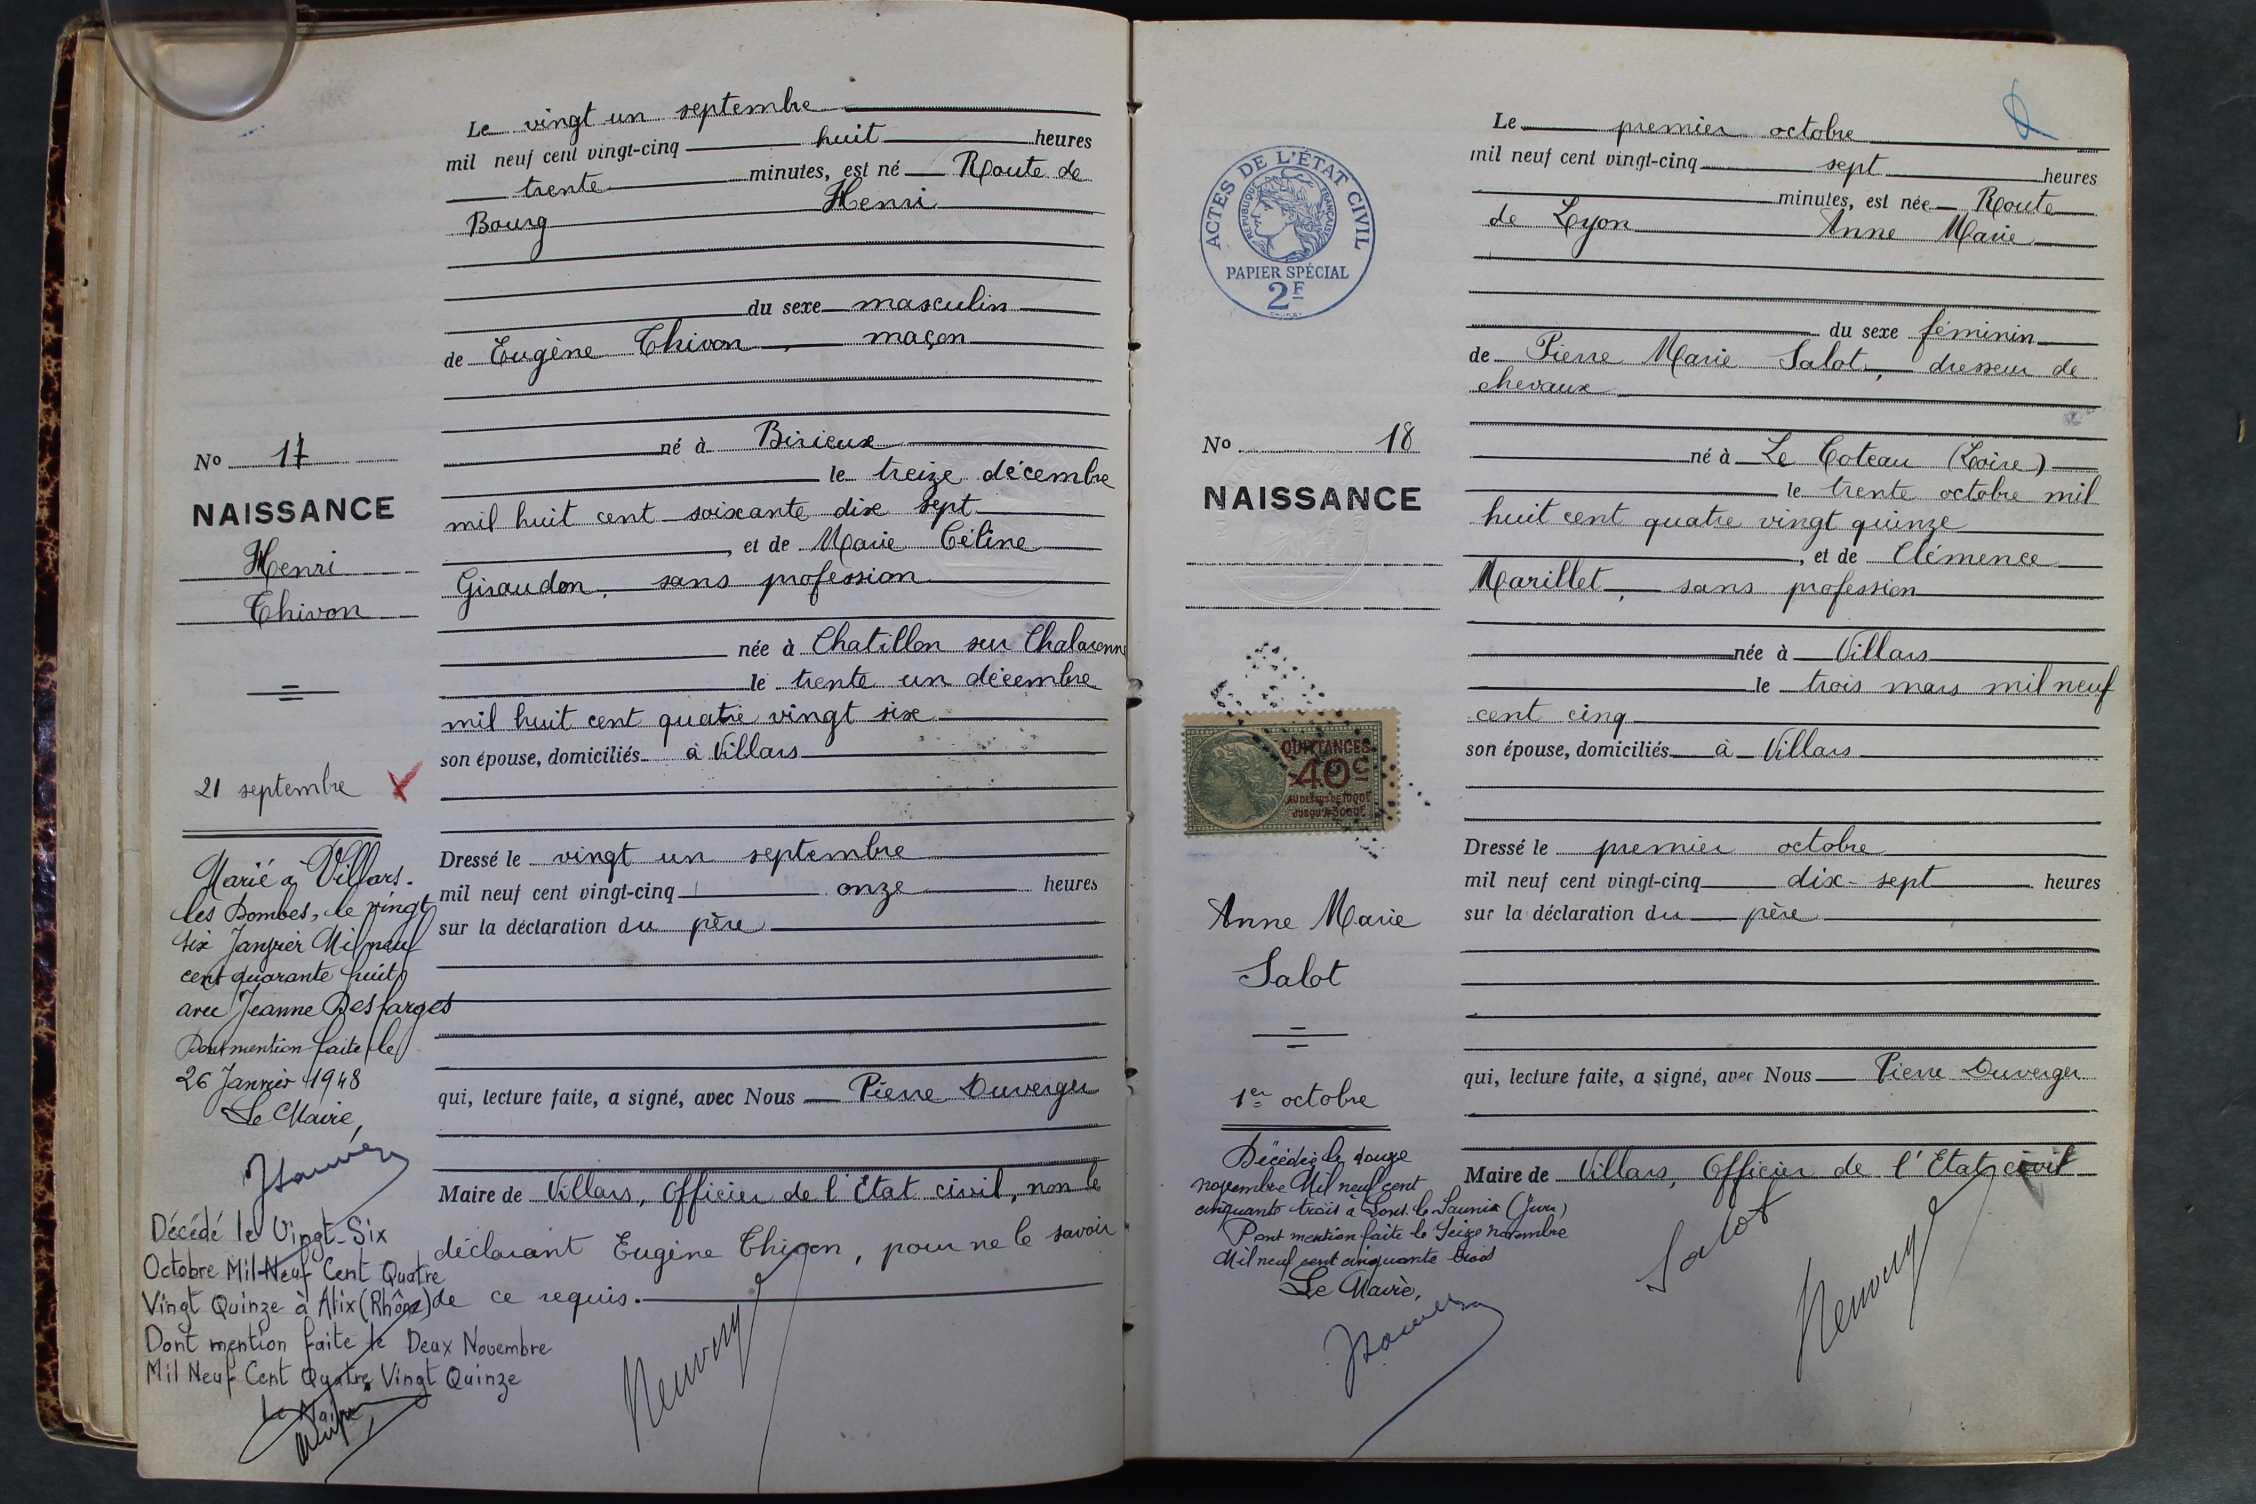 Le vingt un septembre
mil neuf cent vingt-cinq huit heures
trente minutes, est né Route de
Bourg Henri
du sexe masculin
de Eugène Thivon, maçon
né à Birieux
le treize décembre
mil huit cent soixante dix sept
, et de Marie Céline
Giraudon, sans profession
née à Chatillon sur Chalaronne
le trente un décembre
mil huit cent quatre vingt six
son épouse, domiciliés à Villars
Dressé le vingt un septembre
mil neuf cent vingt-cinq onze heures
sur la déclaration du père
qui, lecture faite, a signé, avec Nous Pierre Duverger
Maire de Villars, Officier de l'Etat civil, non le
déclarant Eugène Thivon, pour ne le savoir
de ce requis.
No 17
NAISSANCE
Henri
Thivon
21 septembre
Marié à Villars-
les Dombes, le vingt
six Janvier Mil neuf
cent quarante huit
avec Jeanne Desfarges
Dont mention faite le
26 Janvier 1948
Le Maire,
Décédé le Vingt-Six
Octobre Mil Neuf Cent Quatre
Vingt Quinze à Alix (Rhône)
Dont mention faite le Deux Novembre
Mil Neuf Cent Quatre Vingt Quinze
Le Maire
Le premier octobre
mil neuf cent vingt-cinq sept heures
minutes, est née Route
de Lyon Anne Marie
du sexe féminin
de Pierre Marie Salot, dresseur de
chevaux
né à Le Coteau (Loire)
le trente octobre mil
huit cent quatre vingt quinze
, et de Clémence
Marillet, sans profession
née à Villars
le trois mars mil neuf
cent cinq
son épouse, domiciliés à Villars
Dressé le premier octobre
mil neuf cent vingt-cinq dix-sept heures
sur la déclaration du père
qui, lecture faite, a signé, avec Nous Pierre Duverger
Maire de Villars, Officier de l'Etat civil
Salot
ACTES DE L'ÉTAT CIVIL
RÉPUBLIQUE FRANÇAISE
PAPIER SPÉCIAL
2F
No 18
NAISSANCE
QUITTANCES
40c
Anne Marie
Salot
1er octobre
Décédée le douze
novembre Mil neuf cent
cinquante trois à Lons le Saunier (Jura)
Dont mention faite le Seize novembre
Mil neuf cent cinquante trois
Le Maire,